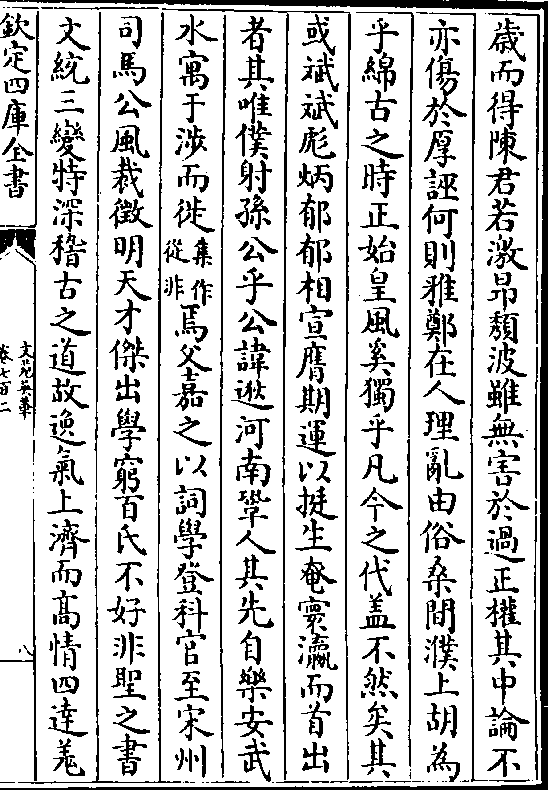 歳而得陳君若激昻頽波雖無害於過正權其中論不
亦傷於厚誣何則雅鄭在人理亂由俗桑間濮上胡為
乎綿古之時正始皇風奚獨乎凡今之代盖不然矣其
或斌斌彪炳郁郁相宣膺期運以挺生奄寰瀛而首出
者其唯僕射孫公乎公諱逖河南鞏人其先自樂安武
水寓于渉而徙集作從非焉父嘉之以詞學登科官至宋州
司馬公風裁徴明天才傑出學窮百氏不好非聖之書
文統三變特深稽古之道故逸氣上濟而髙情四達羌
欽定四庫全書
文苑英華
卷七百二
八